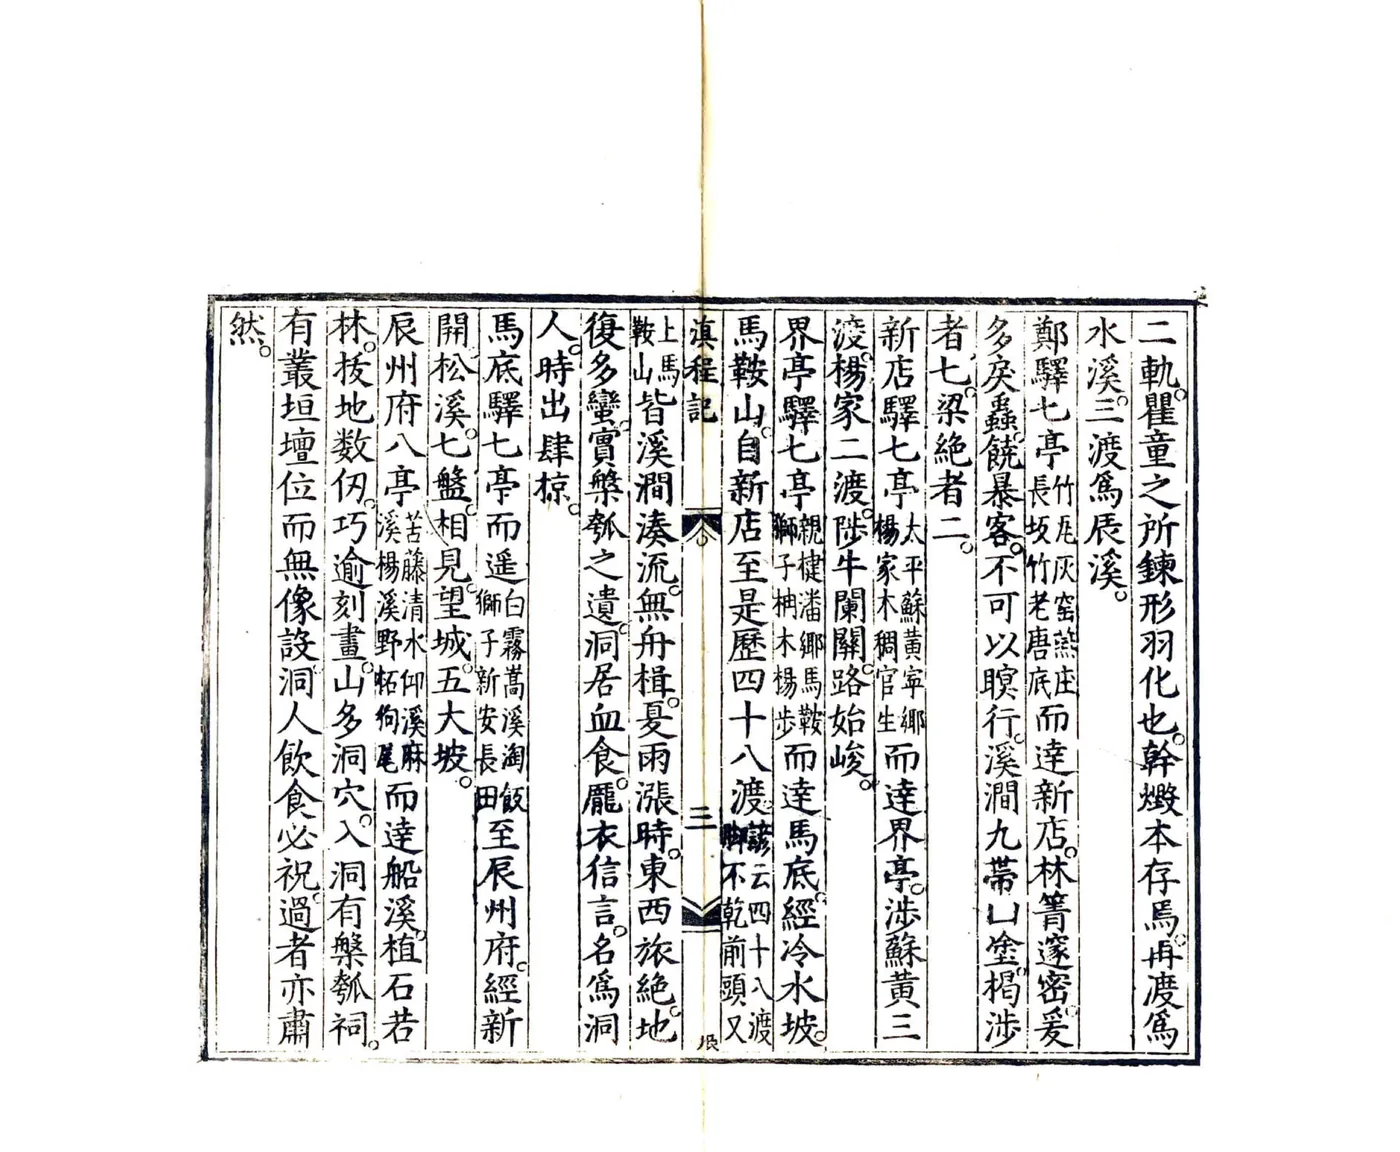 二軌。瞿童之所鍊形羽化也。幹燬本存焉。再渡爲
水溪。三渡爲辰溪。
鄭驛七亭竹瓦灰窑燕庄長坂竹老唐底而達新店。林箐邃密。爰
多戾蟲。饒暴客。不可以暝行。溪澗九帶凵塗。楬涉
者七。梁絶者二。
新店驛七亭太平蘇黄寜郷楊家木稠官生而達界亭。涉蘇黄三
渡。楊家二渡。陟牛闌關。路始峻。
界亭驛七亭親楗潘郷馬鞍獅子柟木楊步而達馬底。經冷水坡。
馬鞍山。自新店至是歷四十八渡。諺云四十八渡脚不乾前頭又
滇程記 三
上馬鞍山皆溪澗湊流。無舟楫。夏雨漲時。東西旅絶。地
復多蠻。實槃瓠之遺。洞居血食。龎衣信言。名爲洞
人。時出肆掠。
馬底驛七亭而遥白霧蒿溪淘飯獅子新安長田至辰州府。經新
開松溪。七盤。相見。望城。五大坡。
辰州府八亭苦藤清水仰溪麻溪楊溪野柘狗尾而達船溪。植石若
林。拔地数仞。巧逾刻畫。山多洞穴。入洞有槃瓠祠。
有叢垣壇位而無像設洞人飲食必祝。過者亦肅
然。